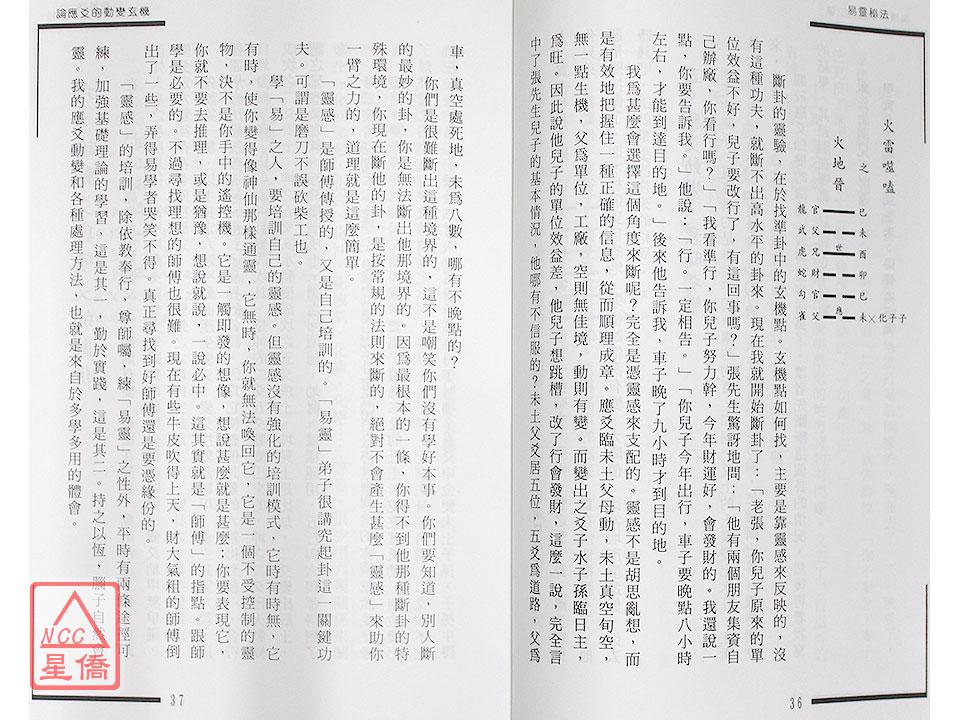 易靈秘法
火雷噬嗑
之
火地晉
龍 官 巳
武 父 未
虎 兄 世 酉
蛇 財 卯
勾 官 巳
雀 父 應 未×化子子
斷卦的靈驗，在於找準卦中的玄機點。玄機點如何找，主要是靠靈感來反映的，沒
有這種功夫，就斷不出高水平的卦來。現在我就開始斷卦了：「老張，你兒子原來的單
位效益不好，兒子要改行了，有這回事嗎？」張先生驚訝地問：「他有兩個朋友集資自
己辦廠，你看行嗎？」「我看準行，你兒子努力幹，今年財運好，會發財的。我還說一
點，你要告訴我。」他說：「行。一定相告。」「你兒子今年出行，車子要晚點八小時
左右，才能到達目的地。」後來他告訴我，車子晚了九小時才到目的地。
我爲甚麼會選擇這個角度來斷呢？完全是憑靈感來支配的。靈感不是胡思亂想，而
是有效地把握住一種正確的信息，從而順理成章。應爻臨未土父母動，未土真空旬空，
無一點生機，父爲單位，工廠，空則無佳境，動則有變。而變出之爻子水子孫臨日主，
爲旺。因此說他兒子的單位效益差，他兒子想跳槽，改了行會發財，這麼一說，完全言
中了張先生兒子的基本情況，他哪有不信服的？未土父爻居五位，五爻爲道路，父爲
36
論應爻的動變玄機
車，真空處死地，未爲八數，哪有不晚點的？
你們是很難斷出這種境界的，這不是嘲笑你們沒有學好本事。你們要知道，別人斷
的最妙的卦，你是無法斷出他那境界的。因爲最根本的一條，你得不到他那種斷卦的特
殊環境，你現在斷他的卦，是按常規的法則來斷的，絕對不會產生甚麼「靈感」來助你
一臂之力的，道理就是這麼簡單。
「靈感」是師傅傳授的，又是自己培訓的。「易靈」弟子很講究起卦這一關鍵功
夫。可謂是磨刀不誤砍柴工也。
學「易」之人，要培訓自己的靈感。但靈感沒有強化的培訓模式，它時有時無，它
有時，使你變得像神仙那樣通靈，它無時，你就無法喚回它，它是一個不受控制的靈
物，決不是你手中的遙控機。它是一觸即發的想像，想說甚麼就是甚麼；你要表現它，
你就不要去推理，或是猶豫，想說就說，一說必中。這其實就是「師傅」的指點。跟師
學是必要的。不過尋找理想的師傅也很難。現在有些牛皮吹得上天，財大氣粗的師傅倒
出了一些，弄得易學者哭笑不得。真正尋找到好師傅還是要憑緣份的。
「靈感」的培訓，除依教奉行，尊師囑，練「易靈」之性外，平時有兩條途徑可
練，加強基礎理論的學習，這是其一，勤於實踐，這是其二。持之以恆，腦子自然會
靈。我的應爻動變和各種處理方法，也就是來自於多學多用的體會。
37
NCC
星僑